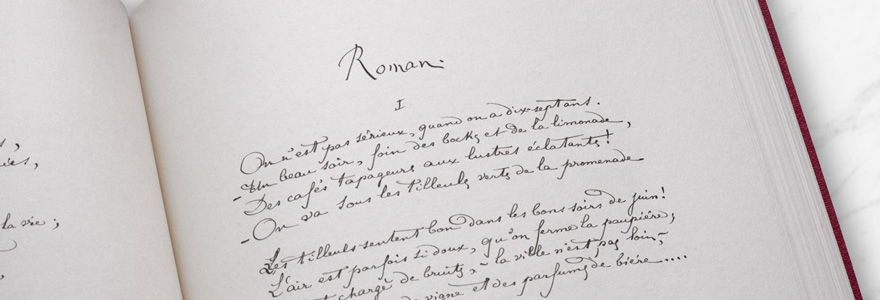 ,
ées,
la vie ;
Roman.
I
On n'est pas sérieux, quand on a dix-sept ans.
- Un beau soir, foin des bocks et de la limonade,
Des cafés tapageurs aux lustres éclatants !
- On va sous les tilleuls verts de la promenade
Les tilleuls sentent bon dans les bons soirs de juin !
L'air est parfois si doux, qu'on ferme la paupière ;
chargé de bruits, - la ville n'est pas loin, -
vigne et des parfums de bière ....